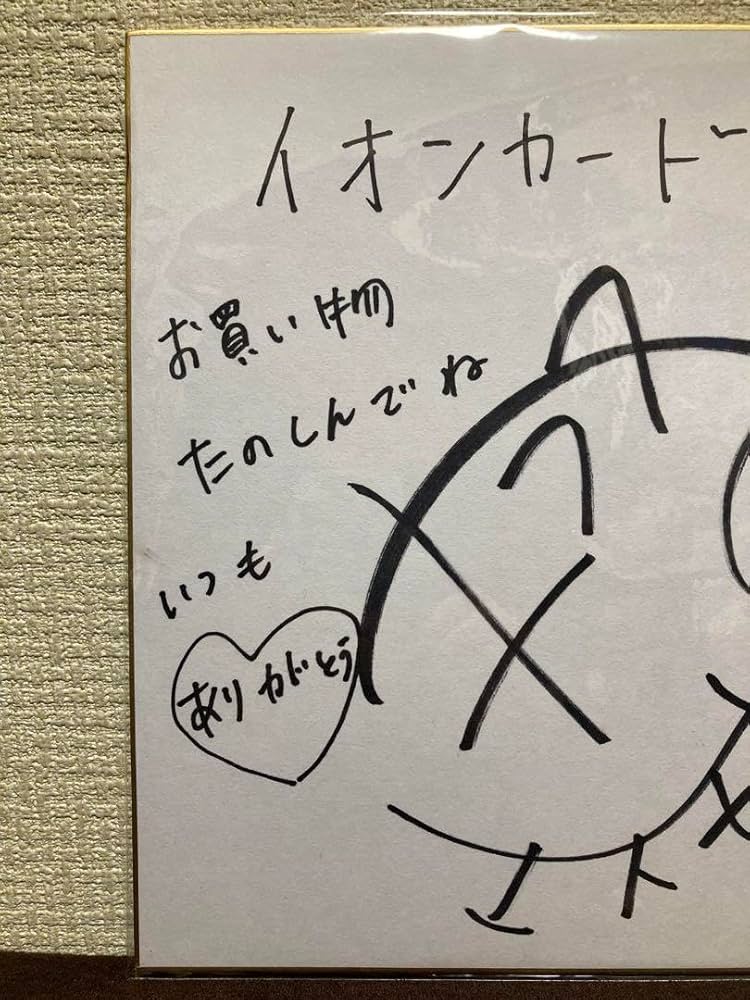 イオンカード
お買い物
たのしんでね
いつも
ありがとう